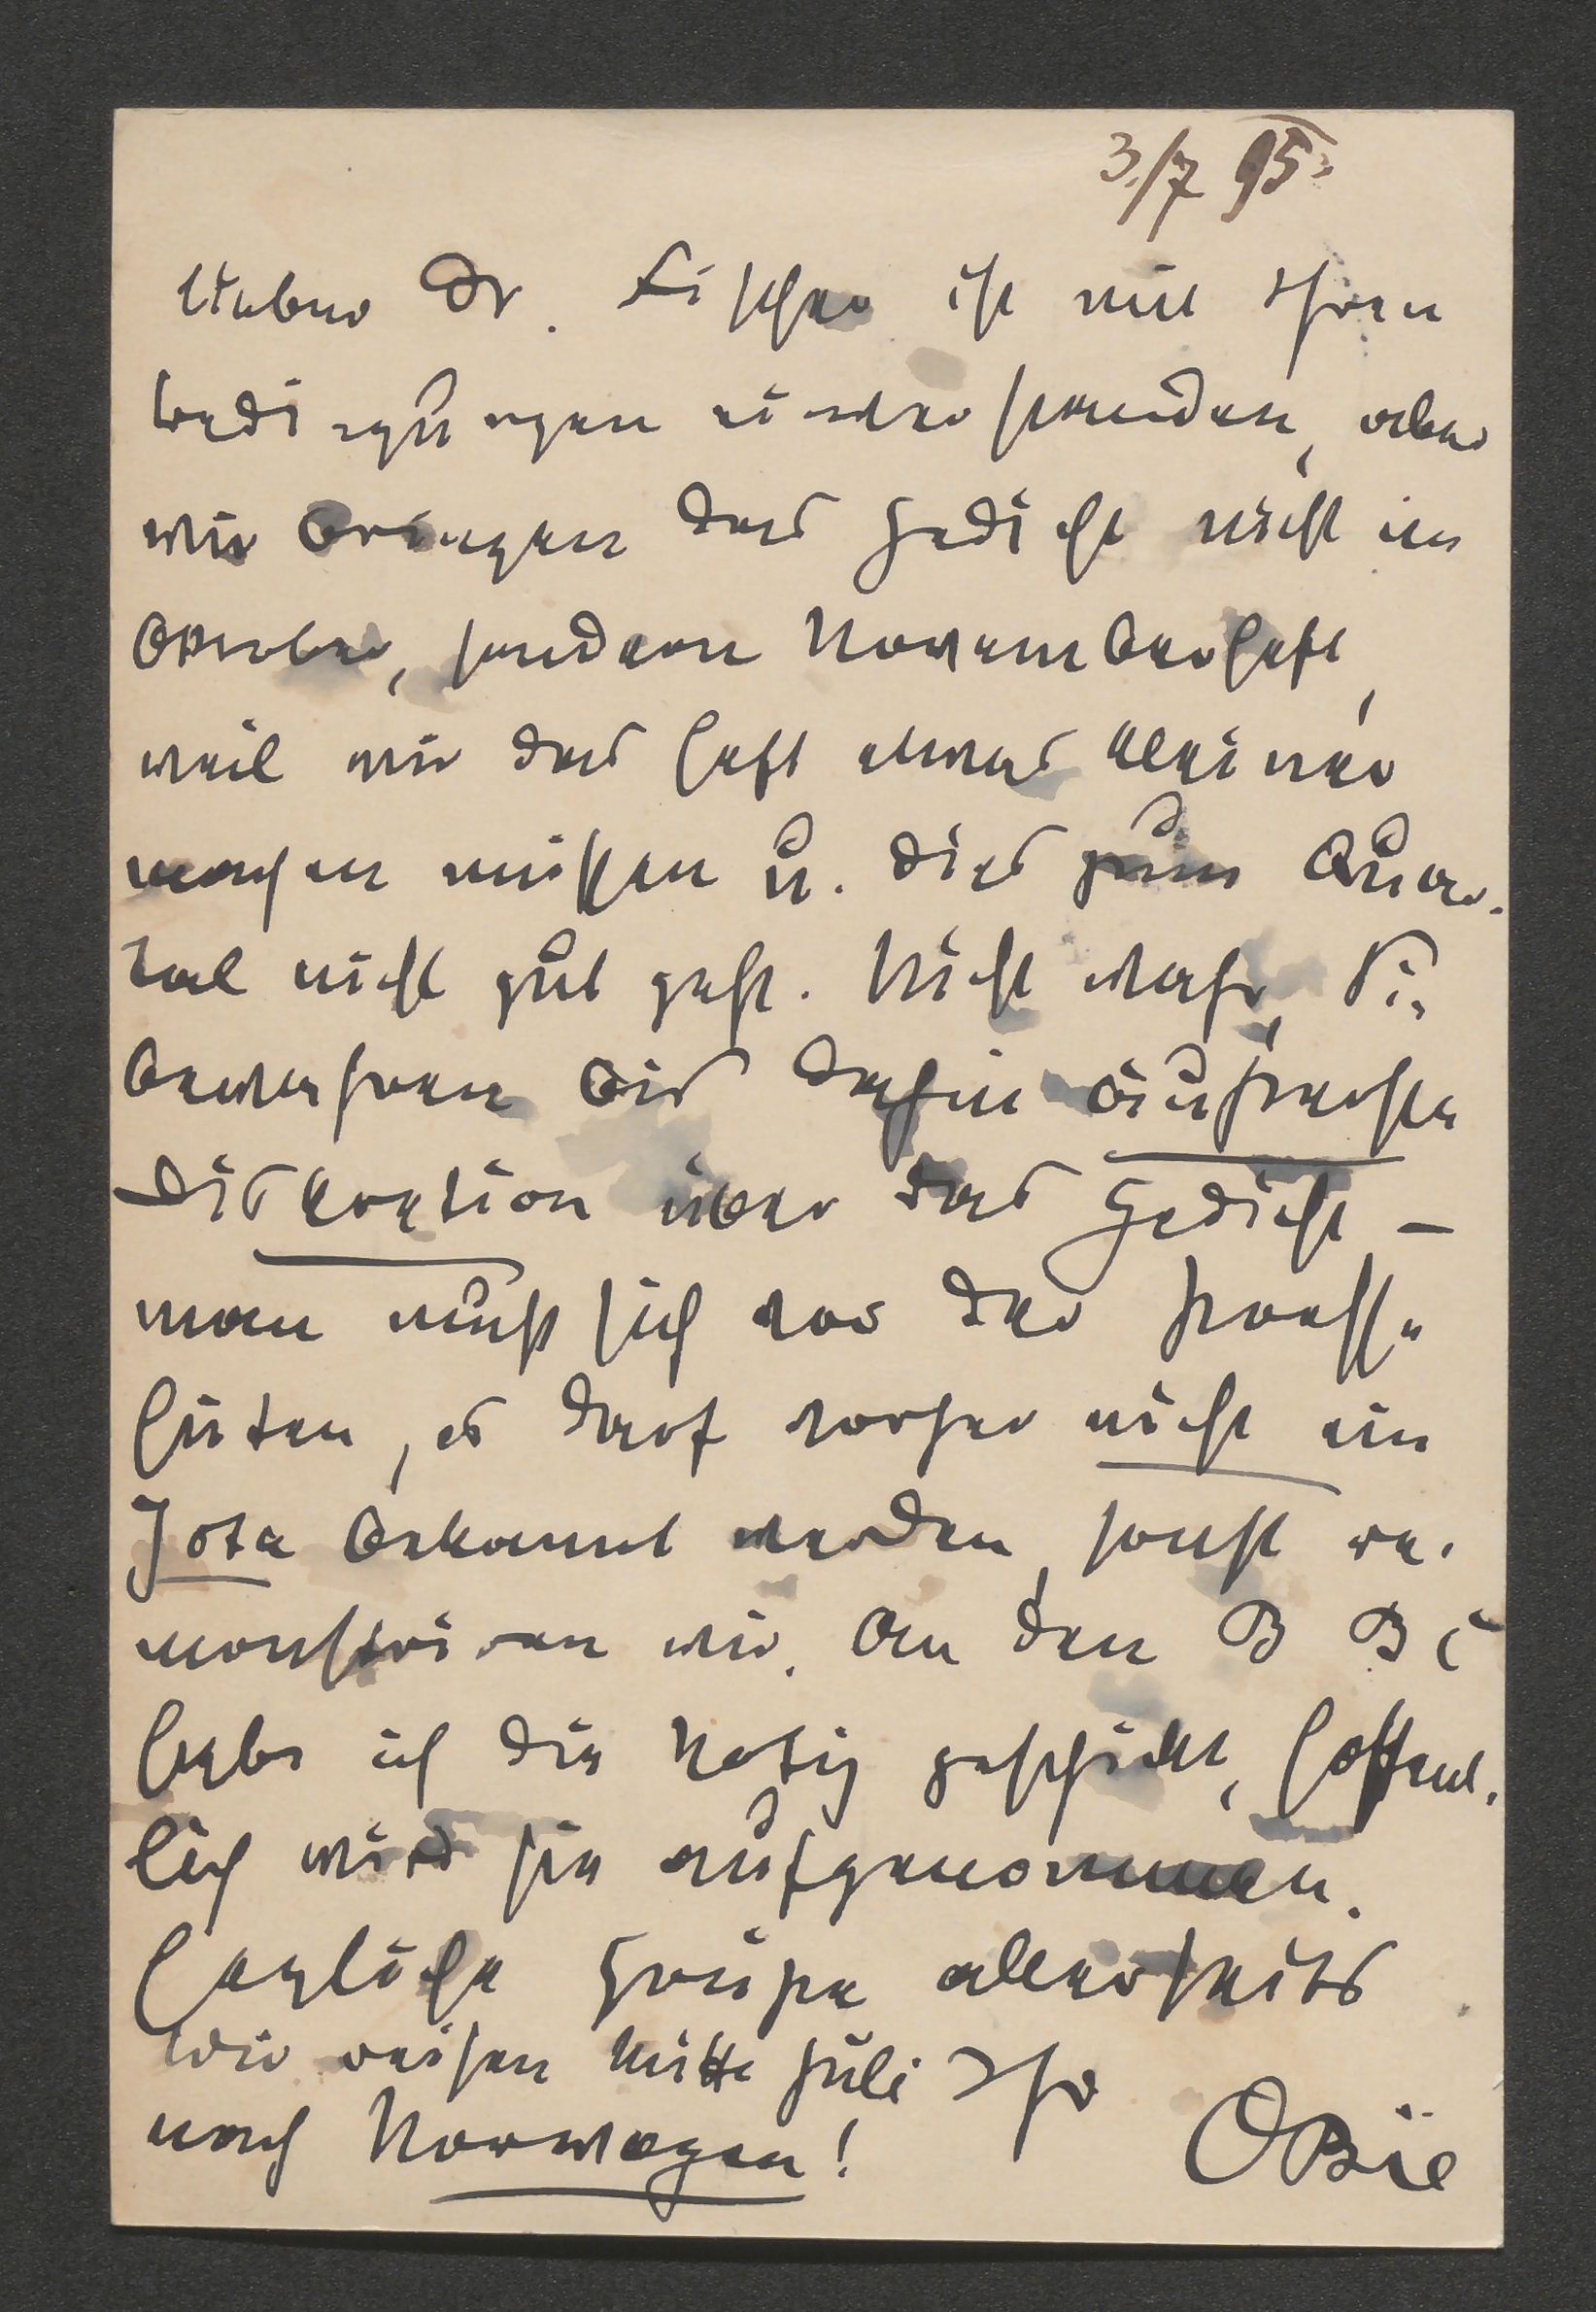 3./7 95.
Lieber Dr. Fischer ist mit Ihren
Bedingungen einverstanden, aber
wir bringen das Gedicht nicht im
Oktober, sondern Novemberheft,
weil wir das Heft etwas kleiner
machen müssen u. dies zum Quar-
tal nicht gut geht. Nicht wahr, Sie
bewahren bis dahin äußerste
Diskretion über das Gedicht –
man muß sich vor der Presse
hüten, es darf vorher nicht ein
Jota bekannt werden, sonst re-
monstriren wir. An den B B C
habe ich die Notiz geschickt, hoffent-
lich wird sie aufgenommen.
Herzliche Grüße allerseits
Wir reisen Mitte Juli Ihr
nach Norwegen! OBie